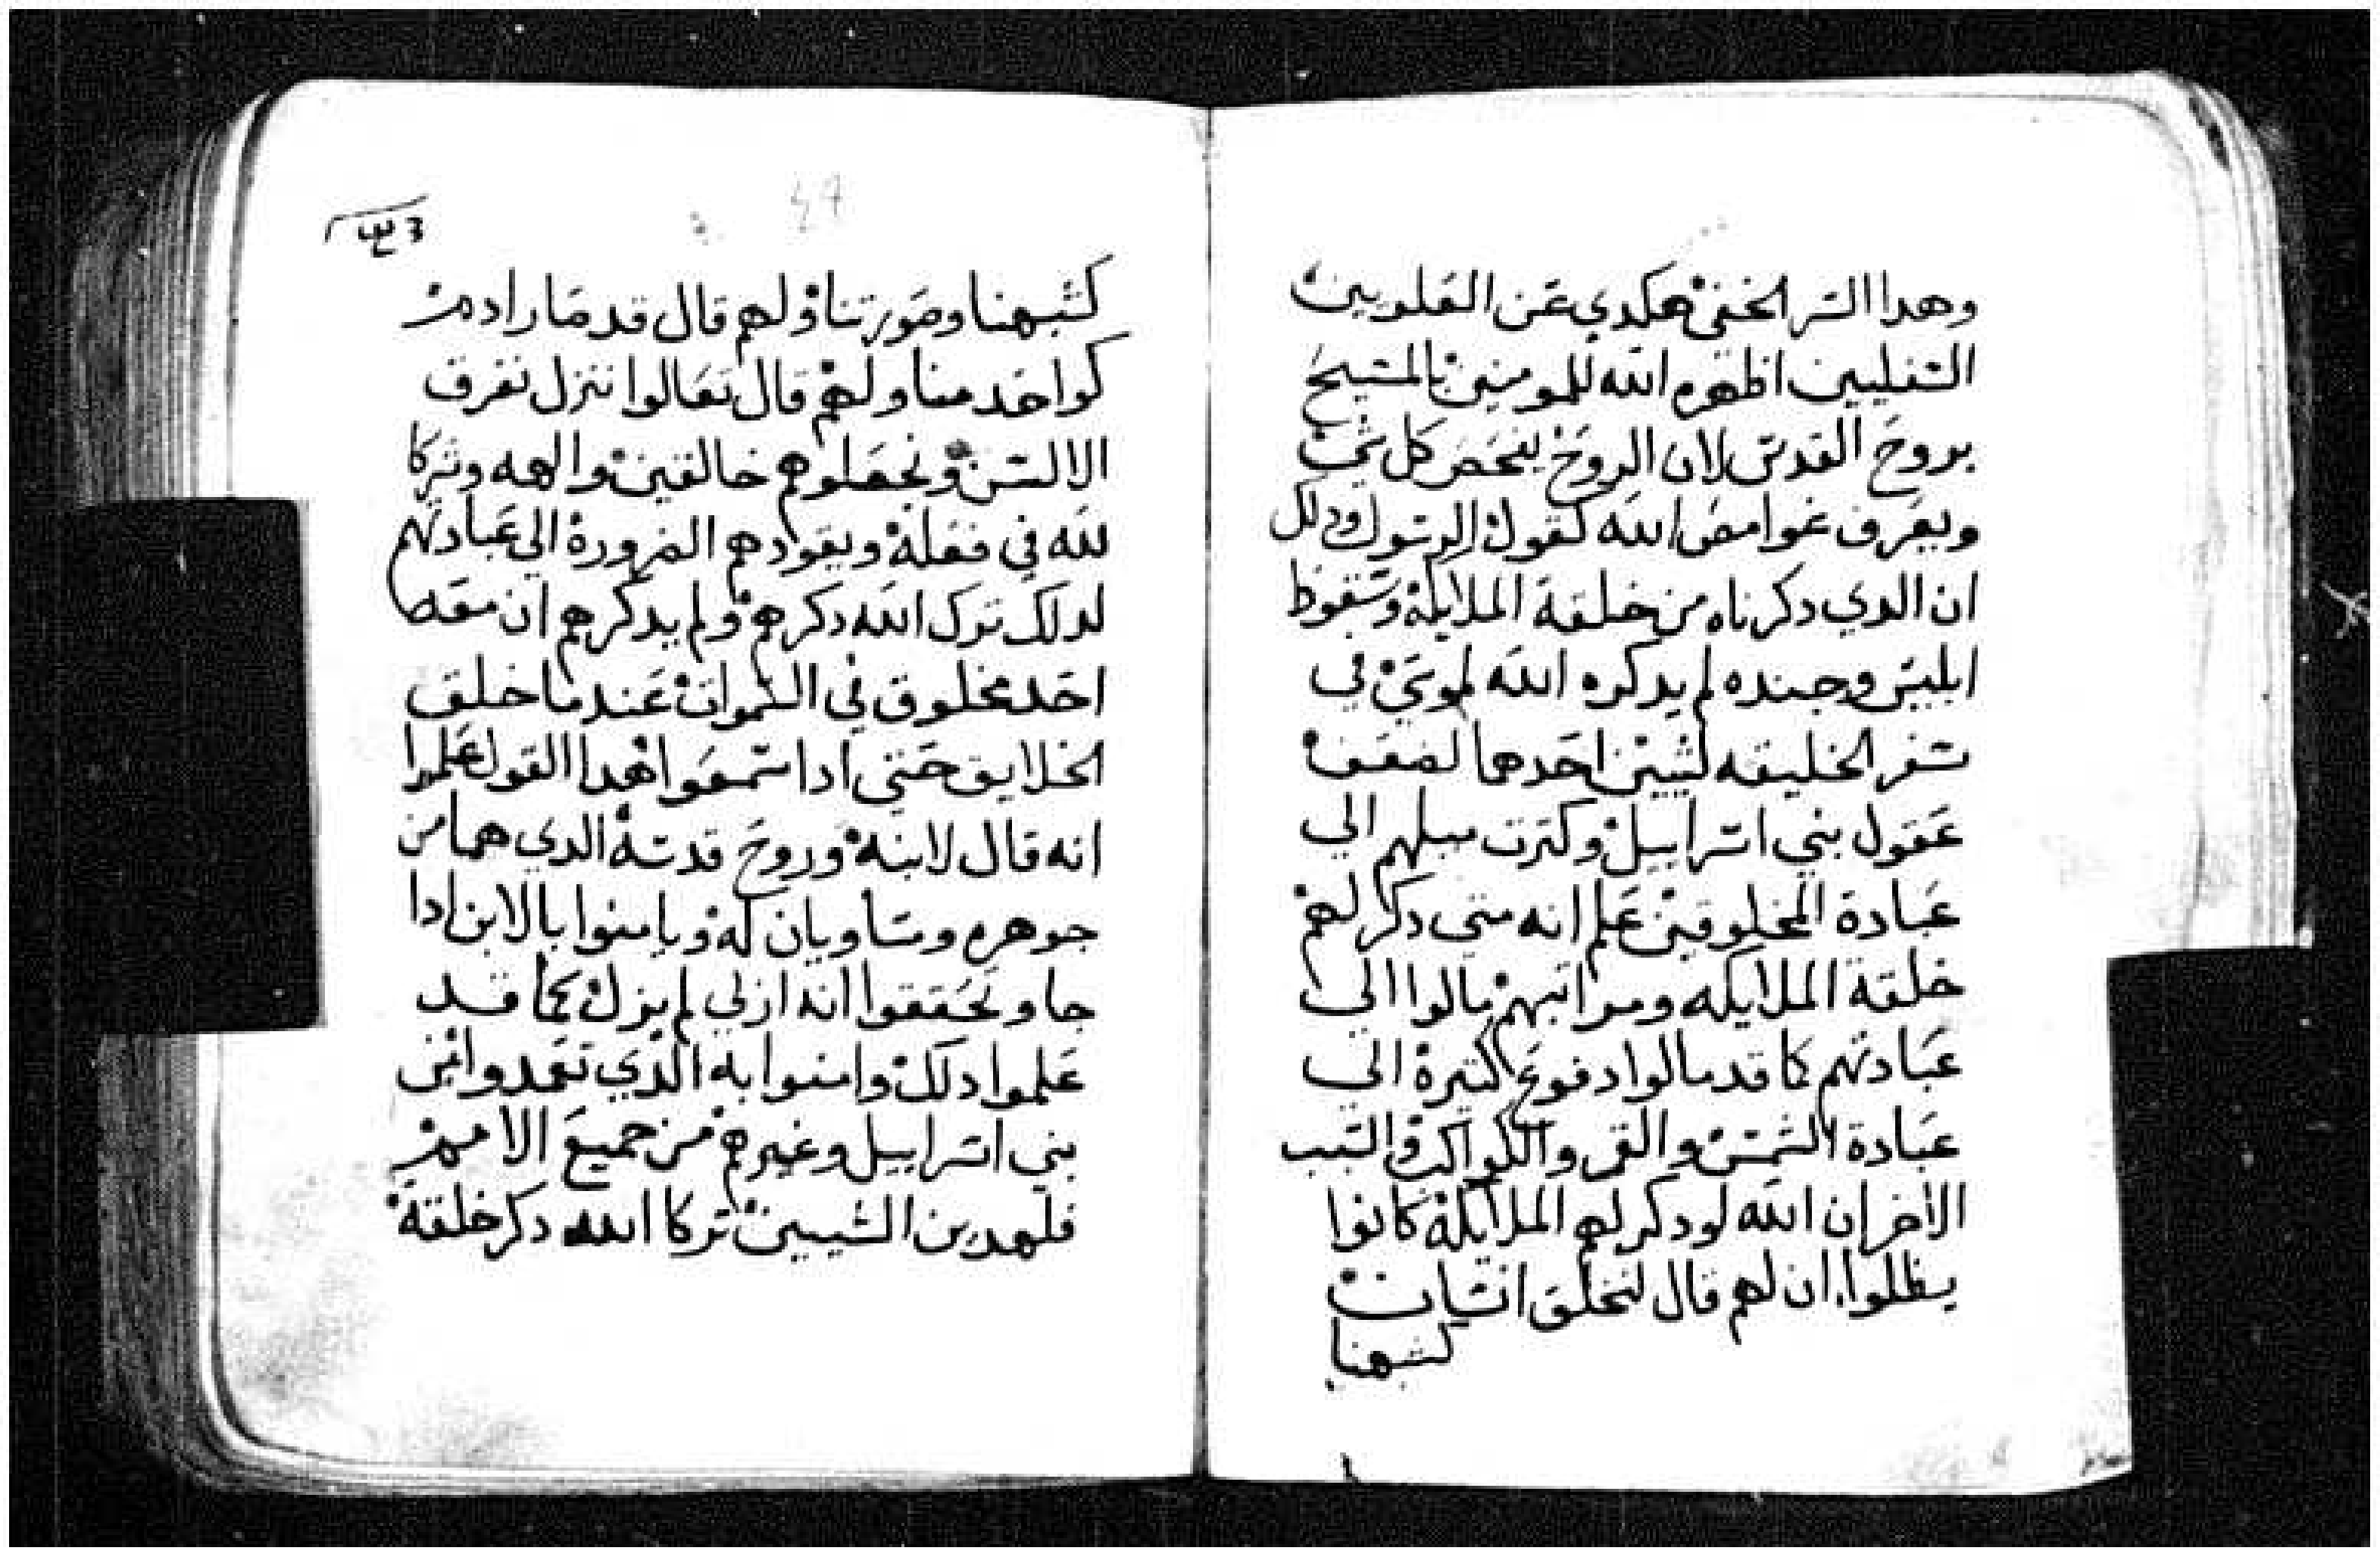 وهدا السر الخفي هكدي عن العلويين
السفليين اظهره الله للمومنين بالمسيح
بروح القدس لان الروح يفحص كل شي
ويعرف غوامض الله كقول الرسول ودلك
ان الدي دكرناه من خلقة الملايكة وسقوط
ابليس وجنده لم يدكره الله لموسي في
سفر الخليقه لشيين احدهما لضعف
عقول بني اسراييل وكترت ميلهم الي
عبادة المخلوقين علم انه متي دكر لهم
خلقة الملايكه ومراتبهم مالوا الي
عبادتهم كما قد مالوا دفوع كتيرة الي
عبادة الشمس والقمر والكواكب والسبب
الاخر ان الله لو دكر لهم الملايكة كانوا
يظلوا ان لهم قال لنخلق انسان
كشبهنا
47
كشبهنا وصورتنا ولهم قال قد صار ادم
كواحد منا ولهم قال تعالوا ننزل نفرق
الالسن ونجعلوهم خالقين والهه وشركا
لله في فعله ويقودهم الضرورة الي عبادتهم
لدلك ترك الله دكرهم ولم يدكرهم ان معه
احد مخلوق في السموات عندما خلق
الخلايق حتي ادا سمعوا هدا القول علموا
انه قال لابنه وروح قدسه الدي هما من
جوهره ومساويان له ويامنوا بالابن ادا
جا وتحققوا انه ازلي لم يزل كما قد
علموا دلك وامنوا به الدي تعمدوا من
بني اسراييل وغيرهم من جميع الامم
فلهدين الشيين تركا الله دكر خلقة